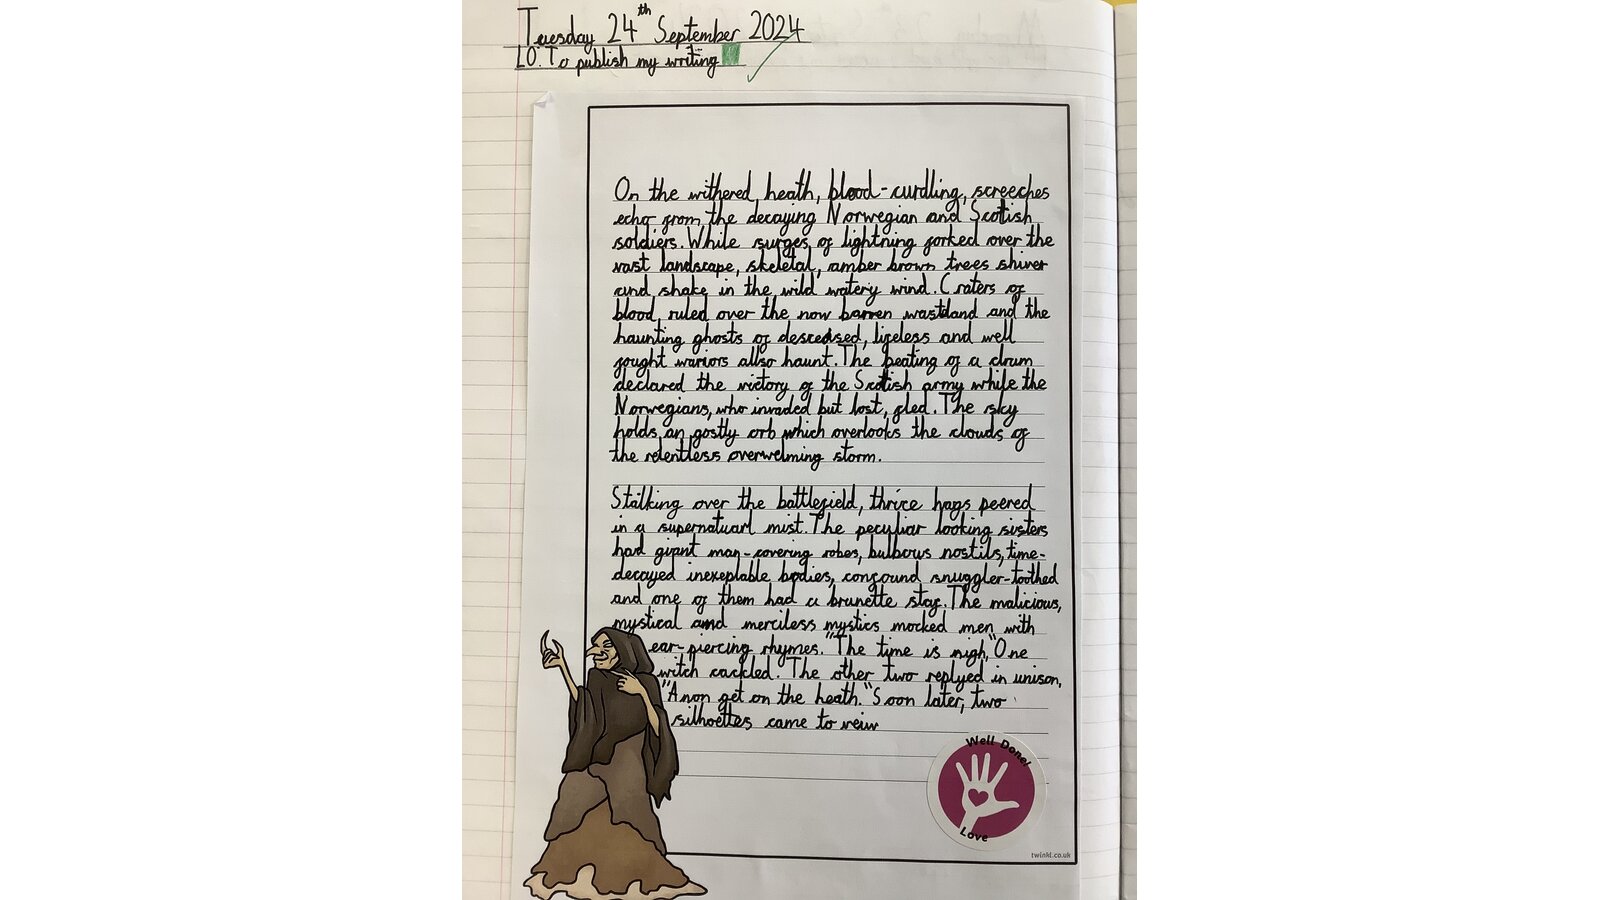 Tuesday 24th September 2024
LO. To publish my writing
On the withered heath, blood-curdling, screeches
echo from the decaying Norwegian and Scotish
soldiers. While surges of lightning forked over the
vast landscape, skeletal, amber brown trees shiver
and shake in the wild watery wind. Craters of
blood ruled over the now barren wastland and the
haunting ghosts of desceased, lifeless and well
fought wariors allso haunt. The beating of a drum
declared the victory of the Scotish army while the
Norwegians, who invaded but lost, fled. The sky
holds an gostly orb which overlooks the clouds of
the relentless overwelming storm.
Stalking over the battlefield, thrice hags peered
in a supernatuarl mist. The peculiar looking sisters
had giant man-covering robes, bulbous nostils, time-
decayed inexeplable bodies, confound snuggler-toothed
and one of them had a brunette staf. The malicious,
mystical and merciless mystics mocked men with
ear-piercing rhymes. "The time is nigh," One
witch cackled. The other two replyed in unison,
"Anon get on the heath." Soon later, two
silhoettes came to veiw
Well Done!
Love
twinkl.co.uk